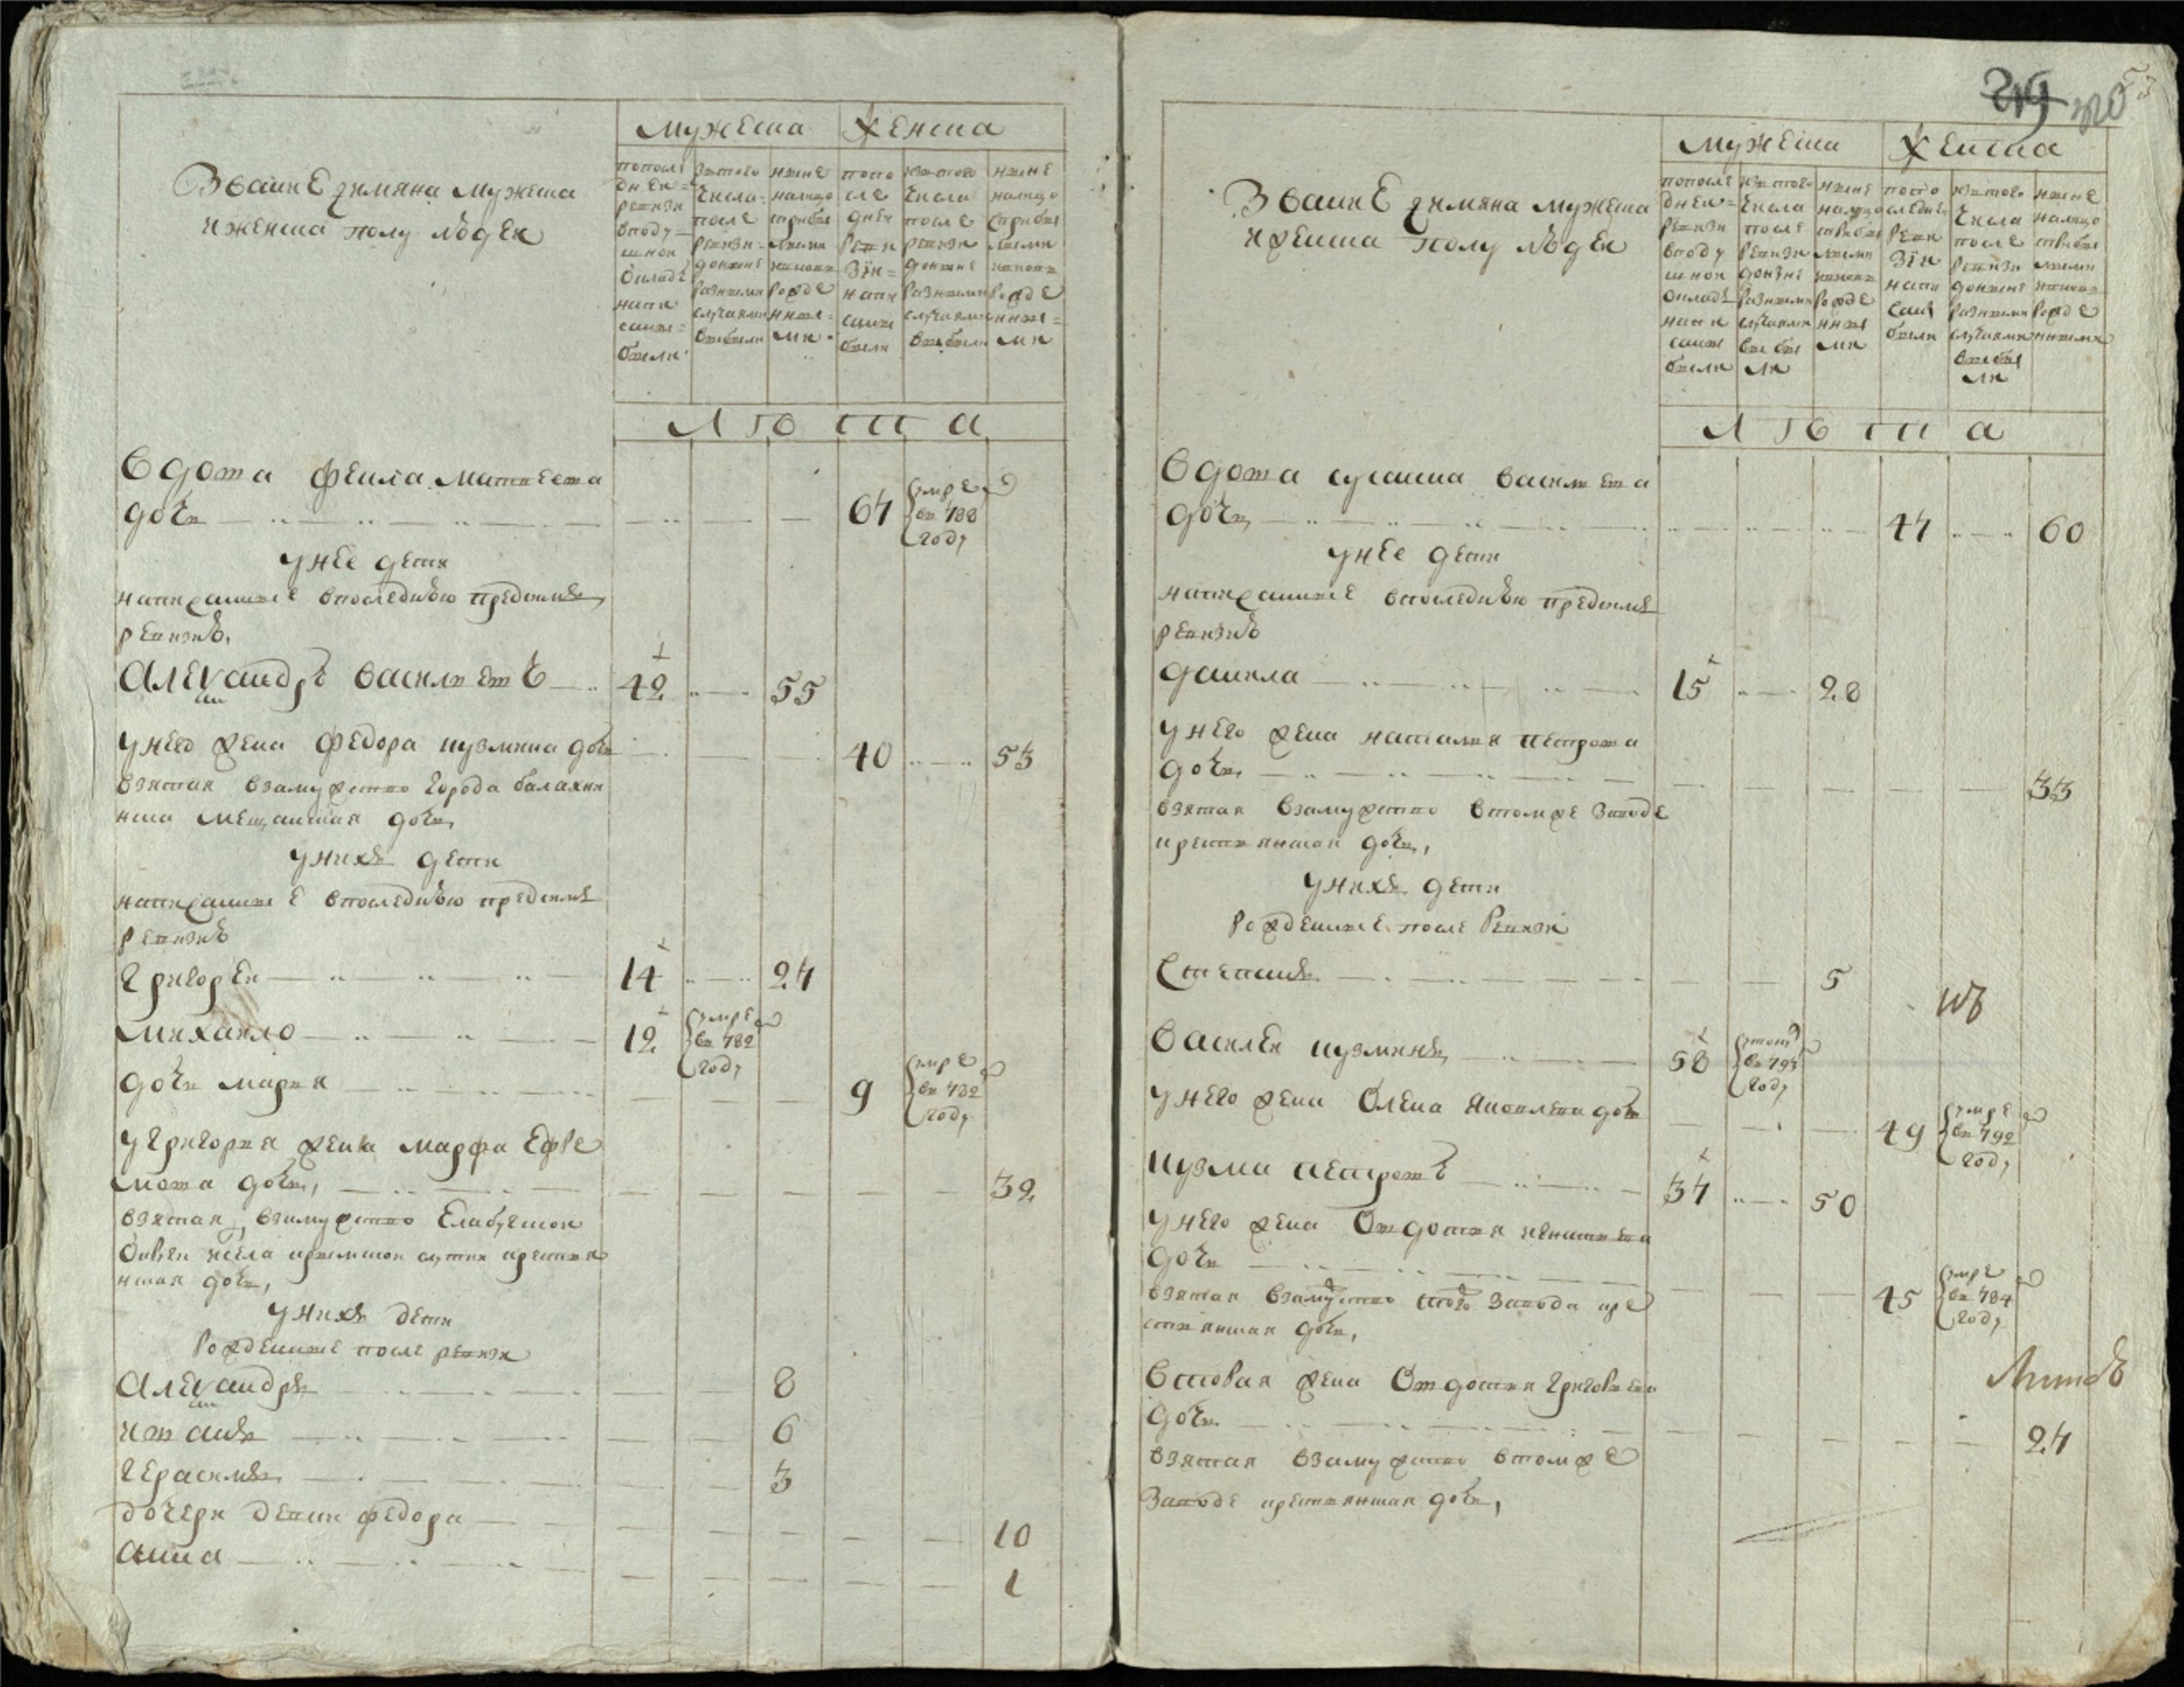 Звание и имяна мужеска
и женска полу людей
мужеска женска
по последней ревизии в подушной окладе написаны были
из того числа после ревизии до ныне разными случаями выбыли
ныне налицо с прибылыми и вновь рожденными
по последней ревизии написаны были
из того числа после ревизии до ныне разными случаями выбыли
ныне налицо с прибылыми и вновь рожденными
лѣта
вдова Фекла Матвеева
дочь 67 умре в 788 году
у нее дети
написанные в последнюю пред симъ
ревизию
Александръ Васильевъ 42 55
у него жена Федора Кузмина дочь 40 53
взятая в замужство города Балахни
нска мещанская дочь
у нихъ дети
написанные в последнюю пред симъ
ревизию
Григорей 14 27
Михайло 12 умре в 782 году
дочь Мария 9 умре в 782 году
у Григория жена Марфа Ефре
мова дочь 32
взятая в замужство Елабужской
крестья
нская дочь
у нихъ дети
рожденные после ревизи
Александръ 8
Иванъ 6
Герасимъ 3
дочери девки Федора 10
Анна 1
219 220
Звание и имяна мужеска
и женска полу людей
мужеска женска
по последней ревизи в подушной окладе написаны были
из того числа после ревизи до ныне разными случаями выбыли
ныне налицо с прибылыми и вновь рожденными
по последней ревизи написаны были
из того числа после ревизи до ныне разными случаями выбыли
ныне налицо с прибылыми и вновь рожденными
лѣта
вдова Сусанна Васильева
дочь 47 60
у нее дети
написанные в последнюю пред симъ
ревизию
Данила 15 28
у него жена Наталья Петрова
дочь 33
взятая в замужство в томже заводе
крестьянская дочь
у нихъ дети
рожденные после ревизи
Степанъ 5
Василей Кузминъ 58 году
у него жена Олена Яковлева дочь 49 умре в 792 году
Кузма Петровъ 37 50
у него жена Овдотья Игнатьева
дочь 45 умре в 784 году
взятая в замужство того завода кре
стьянская дочь
вторая жена Овдотья Григорьева
дочь 27
взятая в замужство в томже
заводе крестьянская дочь